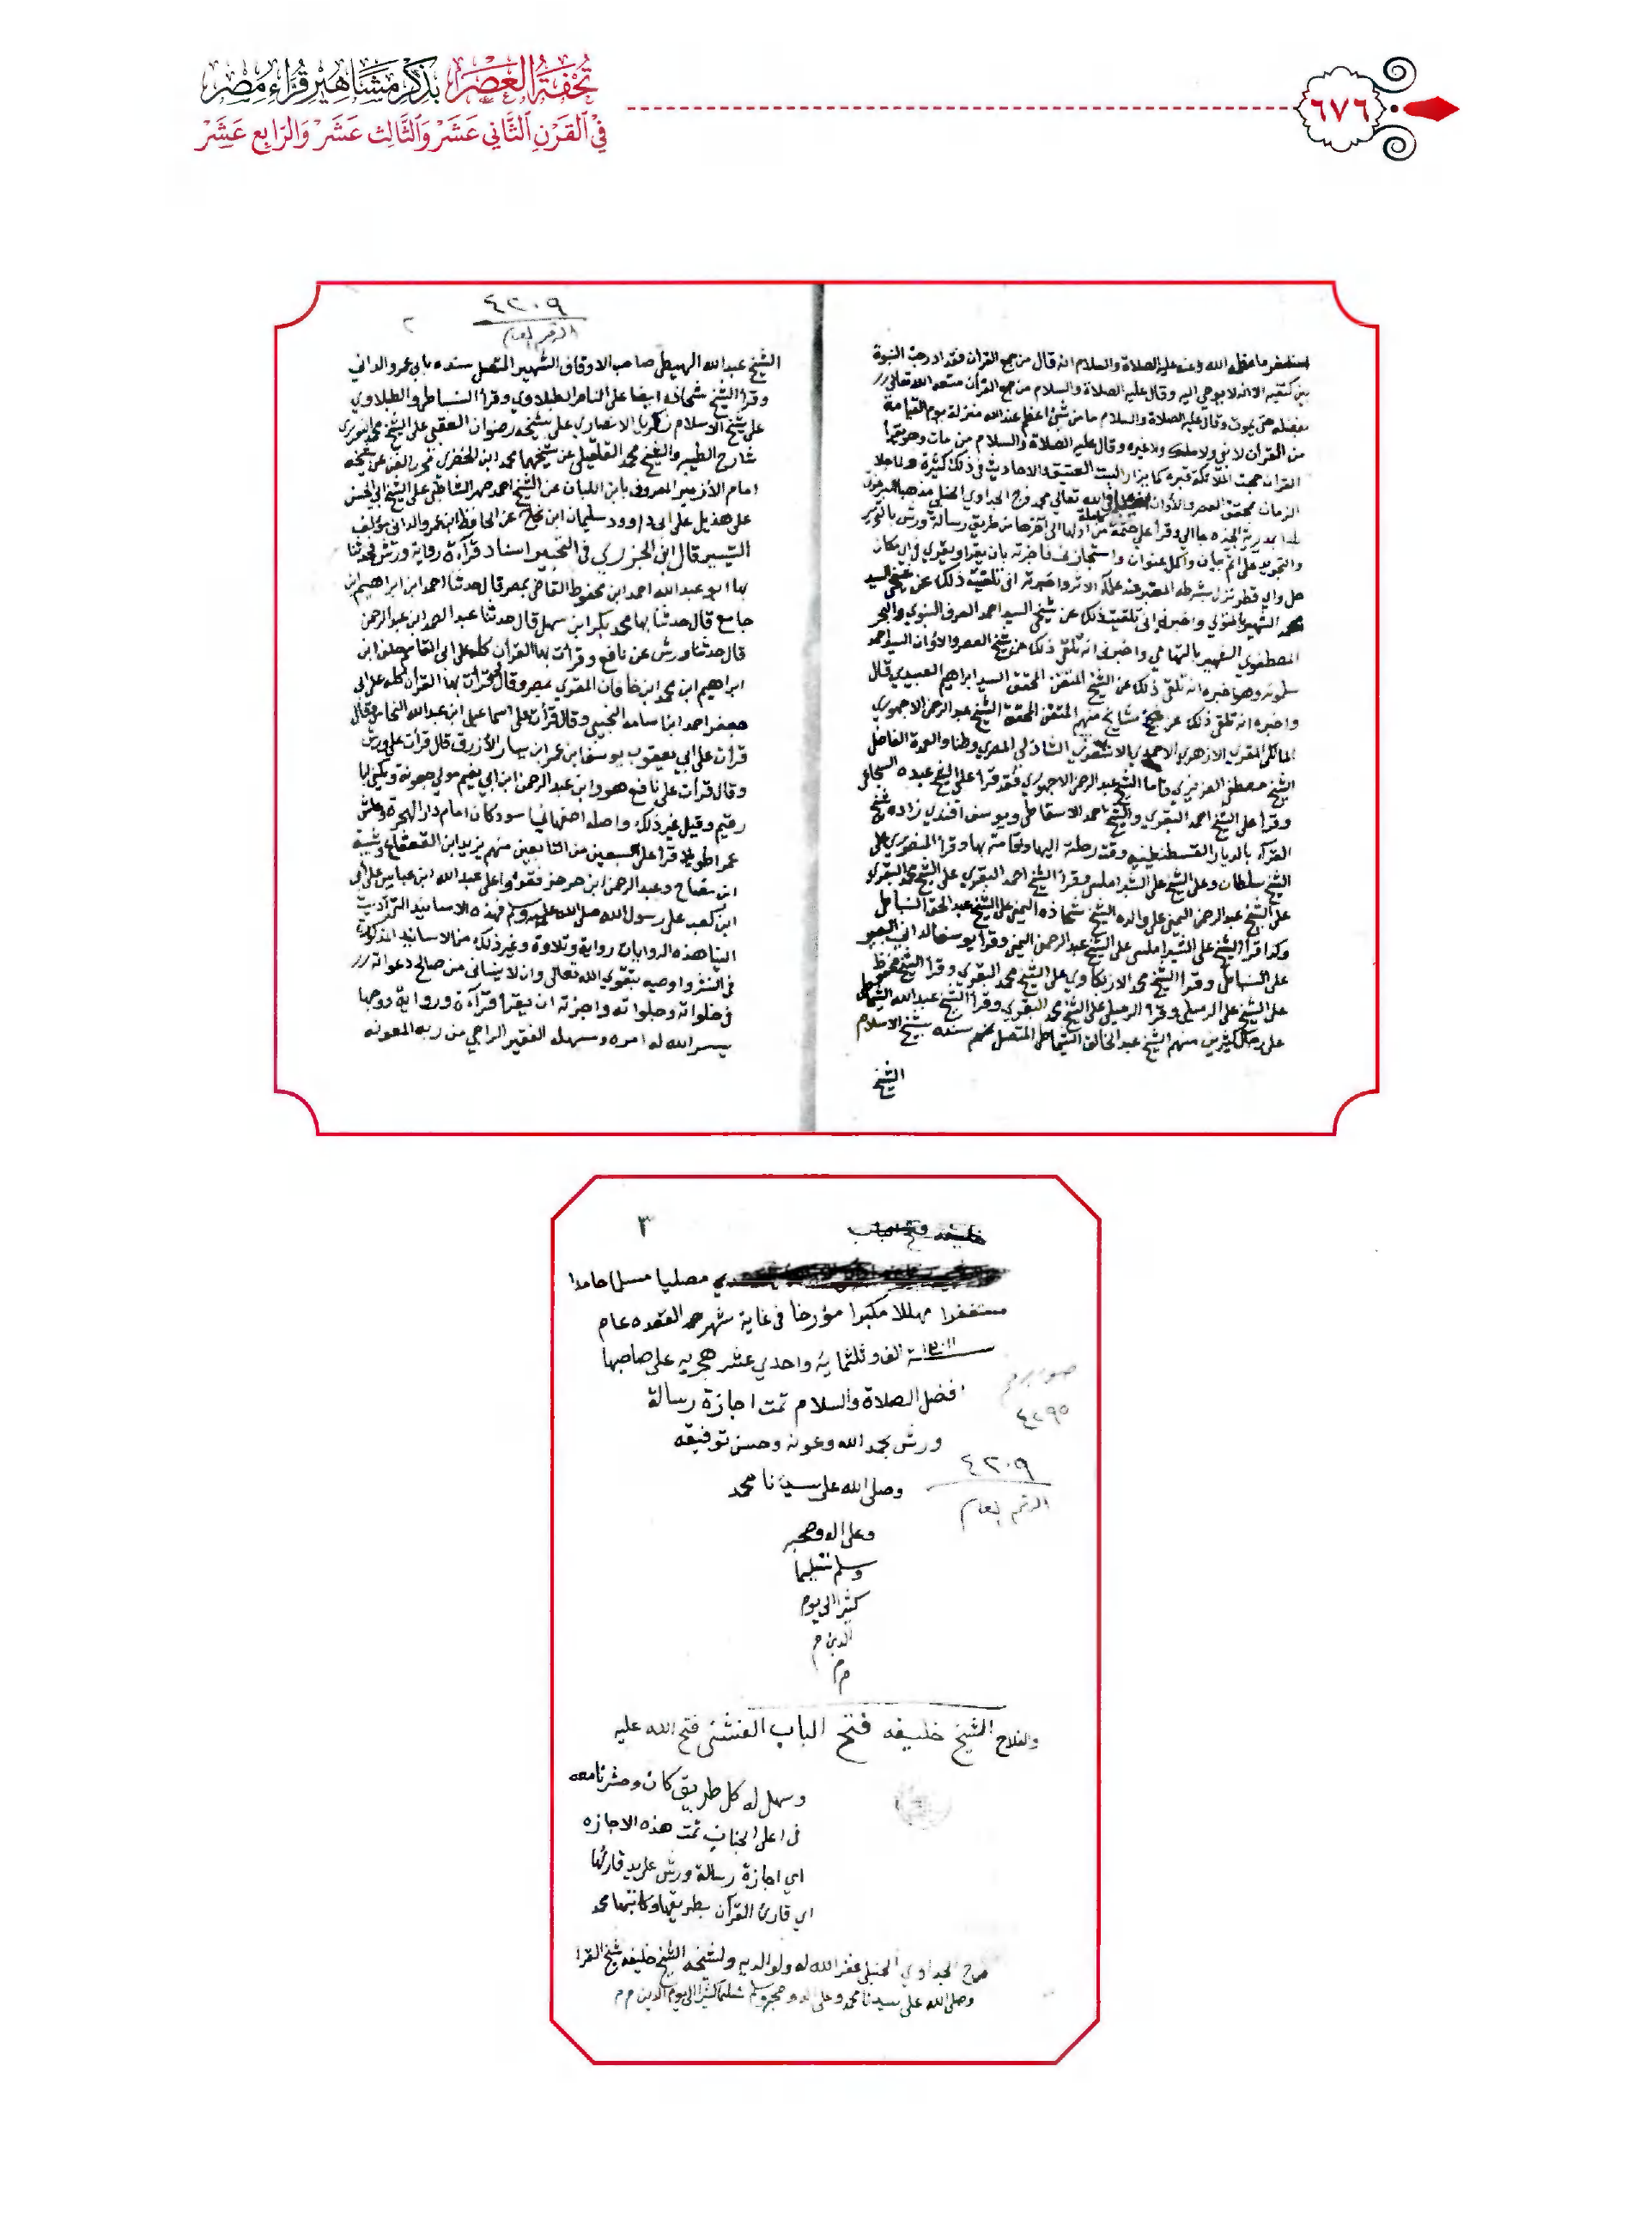 ٦٧٦
تُحْفَةُ الْعَصْرِ بِذِكْرِ مَشَاهِيرِ قُرَّاءِ مِصْرَ
فِي الْقَرْنِ الثَّانِي عَشَرَ وَالثَّالِثَ عَشَرَ وَالرَّابِعَ عَشَرَ
استصغر ما عظمه الله وعنه عليه الصلاة والسلام انه قال من جمع القرآن فقد ادرجت النبوة
بين كتفيه الا انه لا يوحى اليه وقال عليه الصلاة والسلام من جمع القرآن متعه الله تعالى
بعقله حتى يموت وقال عليه الصلاة والسلام ما من شئ اعظم عند الله منزلة يوم القيامة
من القرآن لا نبي ولا ملك ولا غيره وقال عليه الصلاة والسلام من مات وهو يقرأ
القران حجت الملائكة قبره كما يزار البيت العتيق والاحاديث في ذلك كثيرة
الزمان محقق العصر والأوان الله تعالى محمد فرج الجداوي الحنبلي مذهبا
وقرأ علي ختمة من اولها الى آخرها من طريق رسالة ورش بالتحرير
والتجويد على اتم بيان واكمل عنوان واستجازني فاجزته بان يقرأ ويقرئ في اي مكان
حل واي قطر نزل بشرطه المعتبر عند علماء الاثر واخبرته اني تلقيت ذلك عن شيخي السيد
محمد الشهير واخبرني اني تلقيت ذلك عن شيخي السيد احمد العرف النبوي والبحر
المصطفوي الشهير بالتهامي واخبرني انه تلقى ذلك عن شيخ العصر والاوان السيد احمد
سلمونه وهو اخبره انه تلقى ذلك عن الشيخ المتقن المحقق السيد ابراهيم العبيدي قال
واخبره انه تلقى ذلك عن مشايخ منهم المتقن المحقق الشيخ عبد الرحمن الاجهوري
المالكي المقري الازهري الاحمدي الاشعري الشاذلي المصري وطنا والعمدة الفاضل
الشيخ مصطفى العزيزي فاما الشيخ عبد الرحمن الاجهوري فقد قرأ على الشيخ عبده السجاعي
وقرأ على الشيخ احمد البقري والشيخ احمد الاسقاطي ويوسف افندي زاده شيخ
القرآء بالديار القسطنطينيه وقت رحلته اليها واقامته بها وقرأ المنصوري على
الشيخ سلطان وعلى الشيخ على الشبراملسي وقرأ الشيخ احمد البقري على الشيخ محمد البقري
على الشيخ عبد الرحمن اليمني على والده الشيخ شحاذه اليمني على الشيخ عبد الحق السنباطي
وكذا قرأ الشيخ على الشبراملسي على الشيخ عبد الرحمن اليمني وقرأ يوسف
على السنباطي وقرأ الشيخ محمد الازبكاوي على الشيخ محمد البقري وقرأ الشيخ محفوظ
على الشيخ على الرميلي وقرأ الرميلي على الشيخ محمد البقري وقرأ الشيخ عبد الله الشماطي
على رجال كثيرين منهم الشيخ عبد الخالق الشماطي المتصل سنده بشيخ الاسلام
الشيخ
٤٢٠٩
الرقم العام
٢
الشيخ عبد الله الهبطي صاحب الاوقاف الشهير المتصل سنده بابي عمرو الداني
وقرأ الشيخ شحاذه ايضا على الناصر الطبلاوي وقرأ السنباطي والطبلاوي
على شيخ الاسلام زكريا الانصاري على شيخه رضوان العقبي على الشيخ محمد النويري
شارح الطيبه والشيخ محمد القلقيلي عن شيخهما محمد ابن الجزري محرر الفن عن شيخه
امام الأزهر المعروف بابن اللبان عن الشيخ احمد صهر الشاطبي على الشيخ ابي الحسن
على هذيل على ابي داوود سليمان ابن نجاح عن الحافظ ابي عمرو الداني مؤلف
التيسير قال ابن الجزري في التحبير اسناد قرآءة رواية ورش حدثنا
بها ابو عبد الله احمد ابن محفوظ القاضي بمصر قال حدثنا احمد ابن ابراهيم ابن
جامع قال حدثنا بها محمد بكر ابن سهل قال حدثنا عبد الصمد ابن عبد الرحمن
قال حدثنا ورش عن نافع وقرأت بها القرآن كله على ابي القاسم خلف ابن
ابراهيم ابن محمد ابن خاقان المقري بمصر وقال لي قرأت بها القرآن كله على ابي
جعفر احمد ابن اسامه التجيبي وقال قرأت على اسماعيل ابن عبد الله النحاس وقال
قرأت على ابي يعقوب يوسف ابن عمر ابن يسار الأزرق قال قرأت على ورش
وقال قرأت على نافع هو ابن عبد الرحمن ابن ابي نعيم مولى جعونة ويكنى ابا
رقيم وقيل غير ذلك واصله اصفهاني اسود كان امام دار الهجرة وعاش
عمرا طويلا قرأ على سبعين من التابعين منهم يزيد ابن القعقاع وشيبة
ابن نصاح وعبد الرحمن ابن هرمز فقرؤا على عبد الله ابن عباس على ابي
ابن كعب على رسول الله صلى الله عليه وسلم فهذه الاسانيد التي ادت
الينا هذه الروايات رواية وتلاوة وغير ذلك من الاسانيد المذكورة
في النشر واوصيه بتقوى الله تعالى وان لا ينساني من صالح دعواته
في خلواته وجلواته واجزته ان يقرأ قرآءة ورواية ووجها
يسر الله له امره وسهل الفقير الراجي من ربه المعونه
٣
خليفه فتح الباب
مصليا مسلما حامدا
مستغفرا مهللا مكبرا مؤرخا في غاية شهر القعده عام
١٣١١ سنة الف وثلثمايه واحدي عشر هجريه على صاحبها
افضل الصلاة والسلام تمت اجازة رسالة
ورش بحمد الله وعونه وحسن توفيقه
وصلى الله على سيدنا محمد
وعلى اله وصحبه
وسلم تسليما
كثيرا الى يوم
الدين م
م م
٤٢٩٥
٤٢٠٩
الرقم العام
والفلاح الشيخ خليفه فتح الباب الفشني فتح الله عليه
وسهل له كل طريق كان وحشرنا معه
في اعلى الجنان تمت هذه الاجازه
اي اجازة رسالة ورش على يد قارئها
اي قارئ القرآن بطريقها وكاتبها محمد
فرج الجداوي الحنبلي غفر الله له ولوالديه ولشيخه الشيخ خليفه شيخ القرا
وصلى الله على سيدنا محمد وعلى اله وصحبه وسلم تسليما كثيرا الى يوم الدين م م